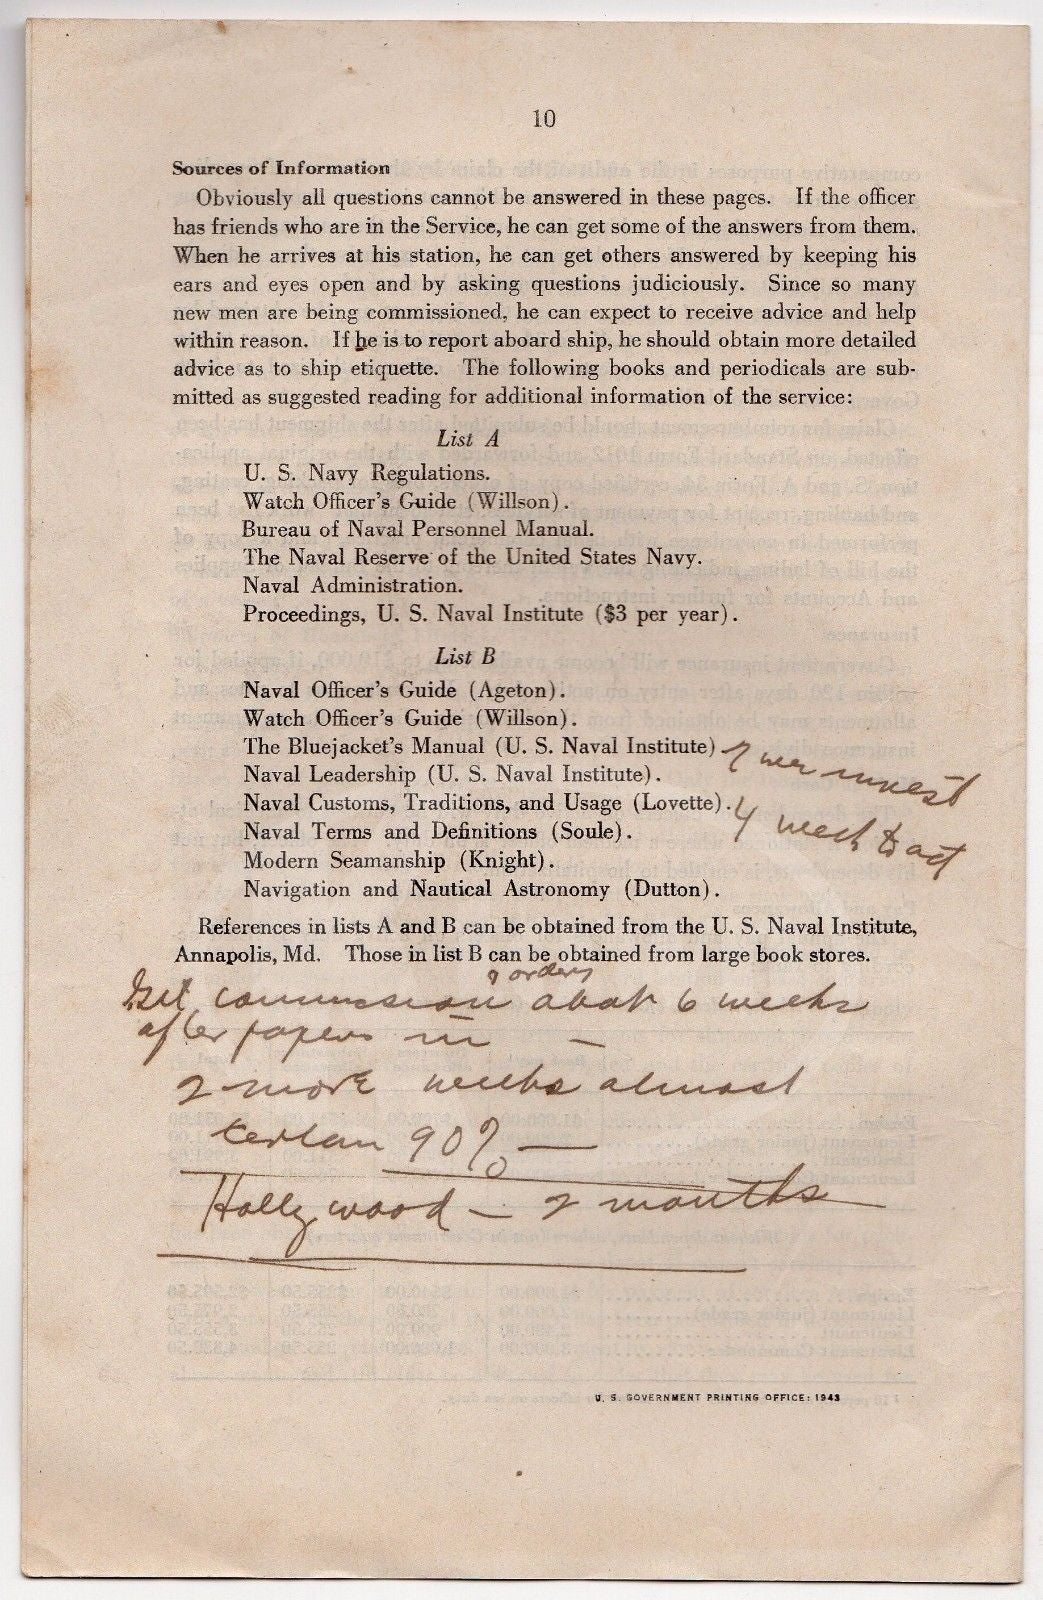 10
Sources of Information
Obviously all questions cannot be answered in these pages. If the officer
has friends who are in the Service, he can get some of the answers from them.
When he arrives at his station, he can get others answered by keeping his
ears and eyes open and by asking questions judiciously. Since so many
new men are being commissioned, he can expect to receive advice and help
within reason. If he is to report aboard ship, he should obtain more detailed
advice as to ship etiquette. The following books and periodicals are sub-
mitted as suggested reading for additional information of the service:
List A
U. S. Navy Regulations.
Watch Officer's Guide (Willson).
Bureau of Naval Personnel Manual.
The Naval Reserve of the United States Navy.
Naval Administration.
Proceedings, U. S. Naval Institute ($3 per year).
List B
Naval Officer's Guide (Ageton).
Watch Officer's Guide (Willson).
The Bluejacket's Manual (U. S. Naval Institute)
Naval Leadership (U. S. Naval Institute).
Naval Customs, Traditions, and Usage (Lovette).
4 week to act
Naval Terms and Definitions (Soule).
Modern Seamanship (Knight).
Navigation and Nautical Astronomy (Dutton).
References in lists A and B can be obtained from the U. S. Naval Institute,
Annapolis, Md. Those in list B can be obtained from large book stores.
orders
Get commission about 6 weeks
after papers in —
2 more weeks almost
certain 90% —
Hollywood — 2 months
U. S. GOVERNMENT PRINTING OFFICE: 1943